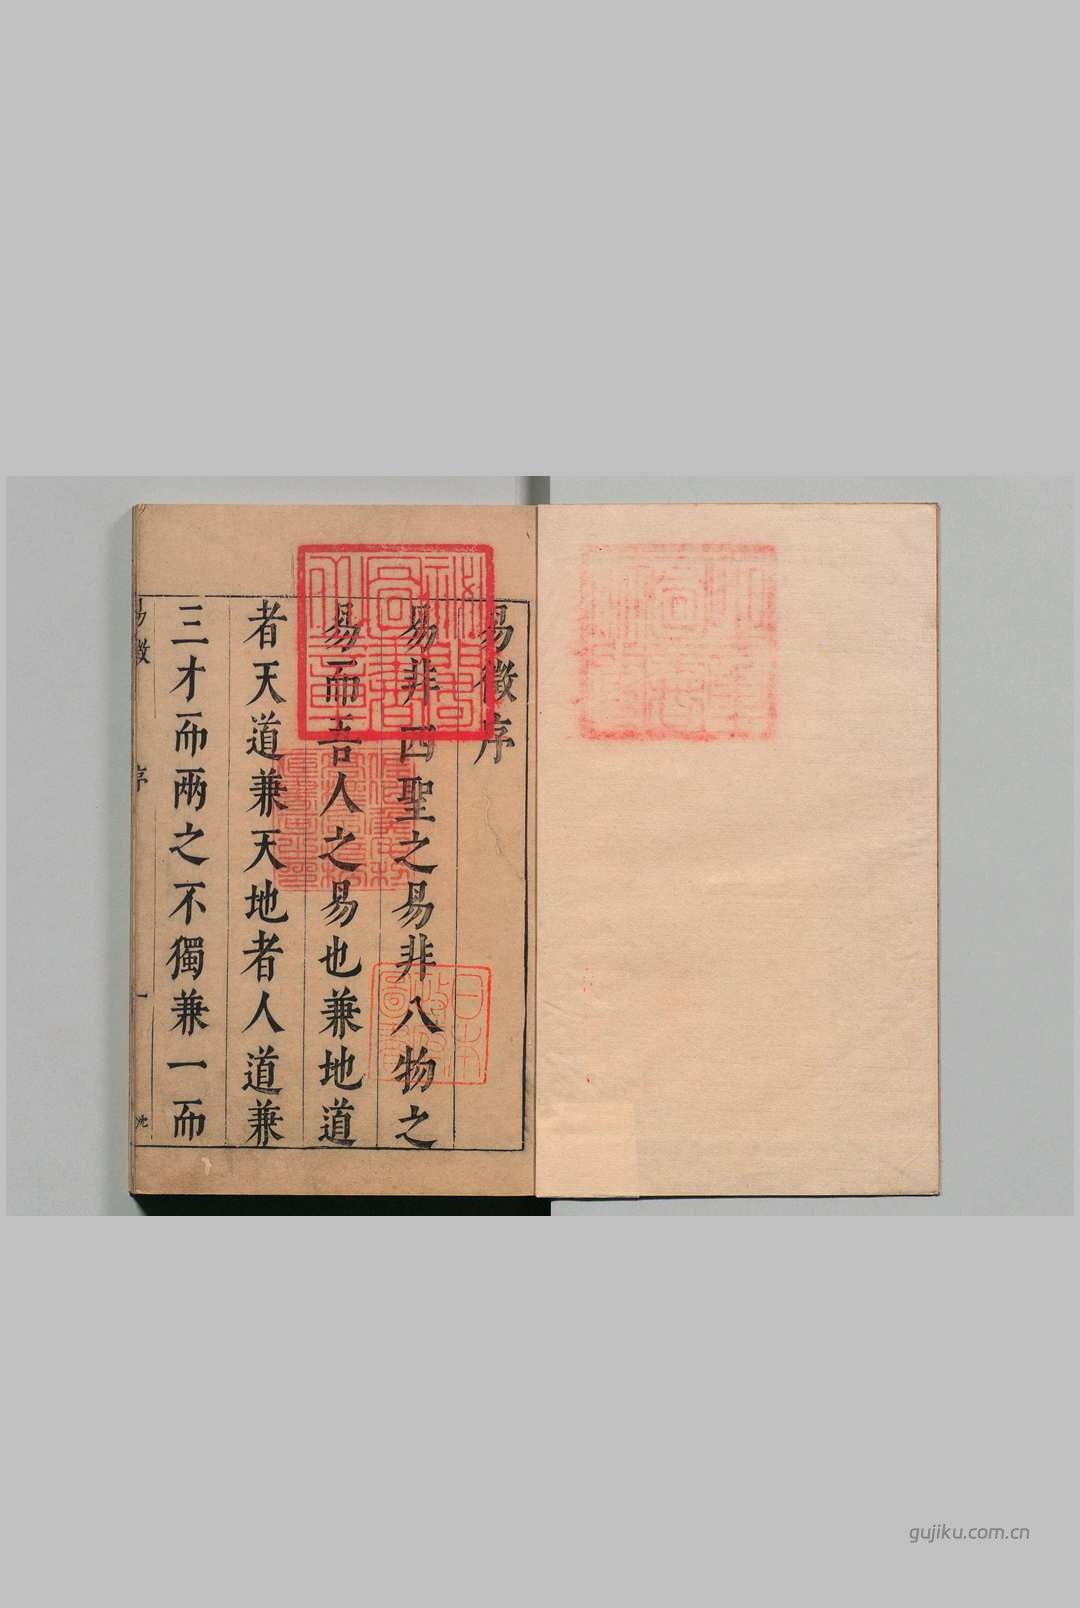 易徵序
易非四聖之易非八物之
易而吾人之易也兼地道
者天道兼天地者人道兼
三才而兩之不獨兼一而
易徵 序 一
日本
gujiku.com.cn